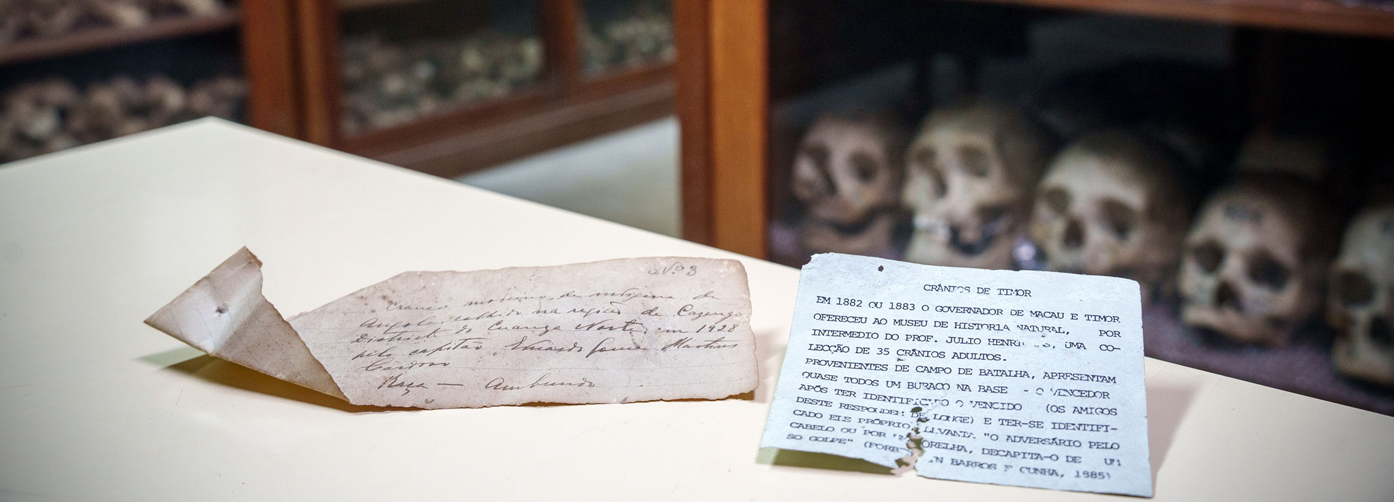 Nº 93
Craneo moderno, de indigena de
Angola colhido na região de Cazengo
District do Cuanza Norte, em 1928
pelo capitão, Eduardo Gomes Martins
Raça — Ambundo
CRÂNIOS DE TIMOR
EM 1882 OU 1883 O GOVERNADOR DE MACAU E TIMOR
OFERECEU AO MUSEU DE HISTORIA NATURAL, POR
INTERMEDIO DO PROF. JULIO HENRI UMA CO-
LECÇÃO DE 35 CRÂNIOS ADULTOS.
PROVENIENTES DE CAMPO DE BATALHA, APRESENTAM
QUASE TODOS UM BURACO NA BASE - O VENCEDOR
APÓS TER IDENTIFICADO O VENCIDO (OS AMIGOS
DESTE RESPONDEM DE LONGE) E TER-SE IDENTIFI-
CADO ELE PRÓPRIO, LEVANTA "O ADVERSÁRIO PELO
CABELO OU POR ORELHA, DECAPITA-O DE UM
SO GOLPE" BARROS E CUNHA, 1985)